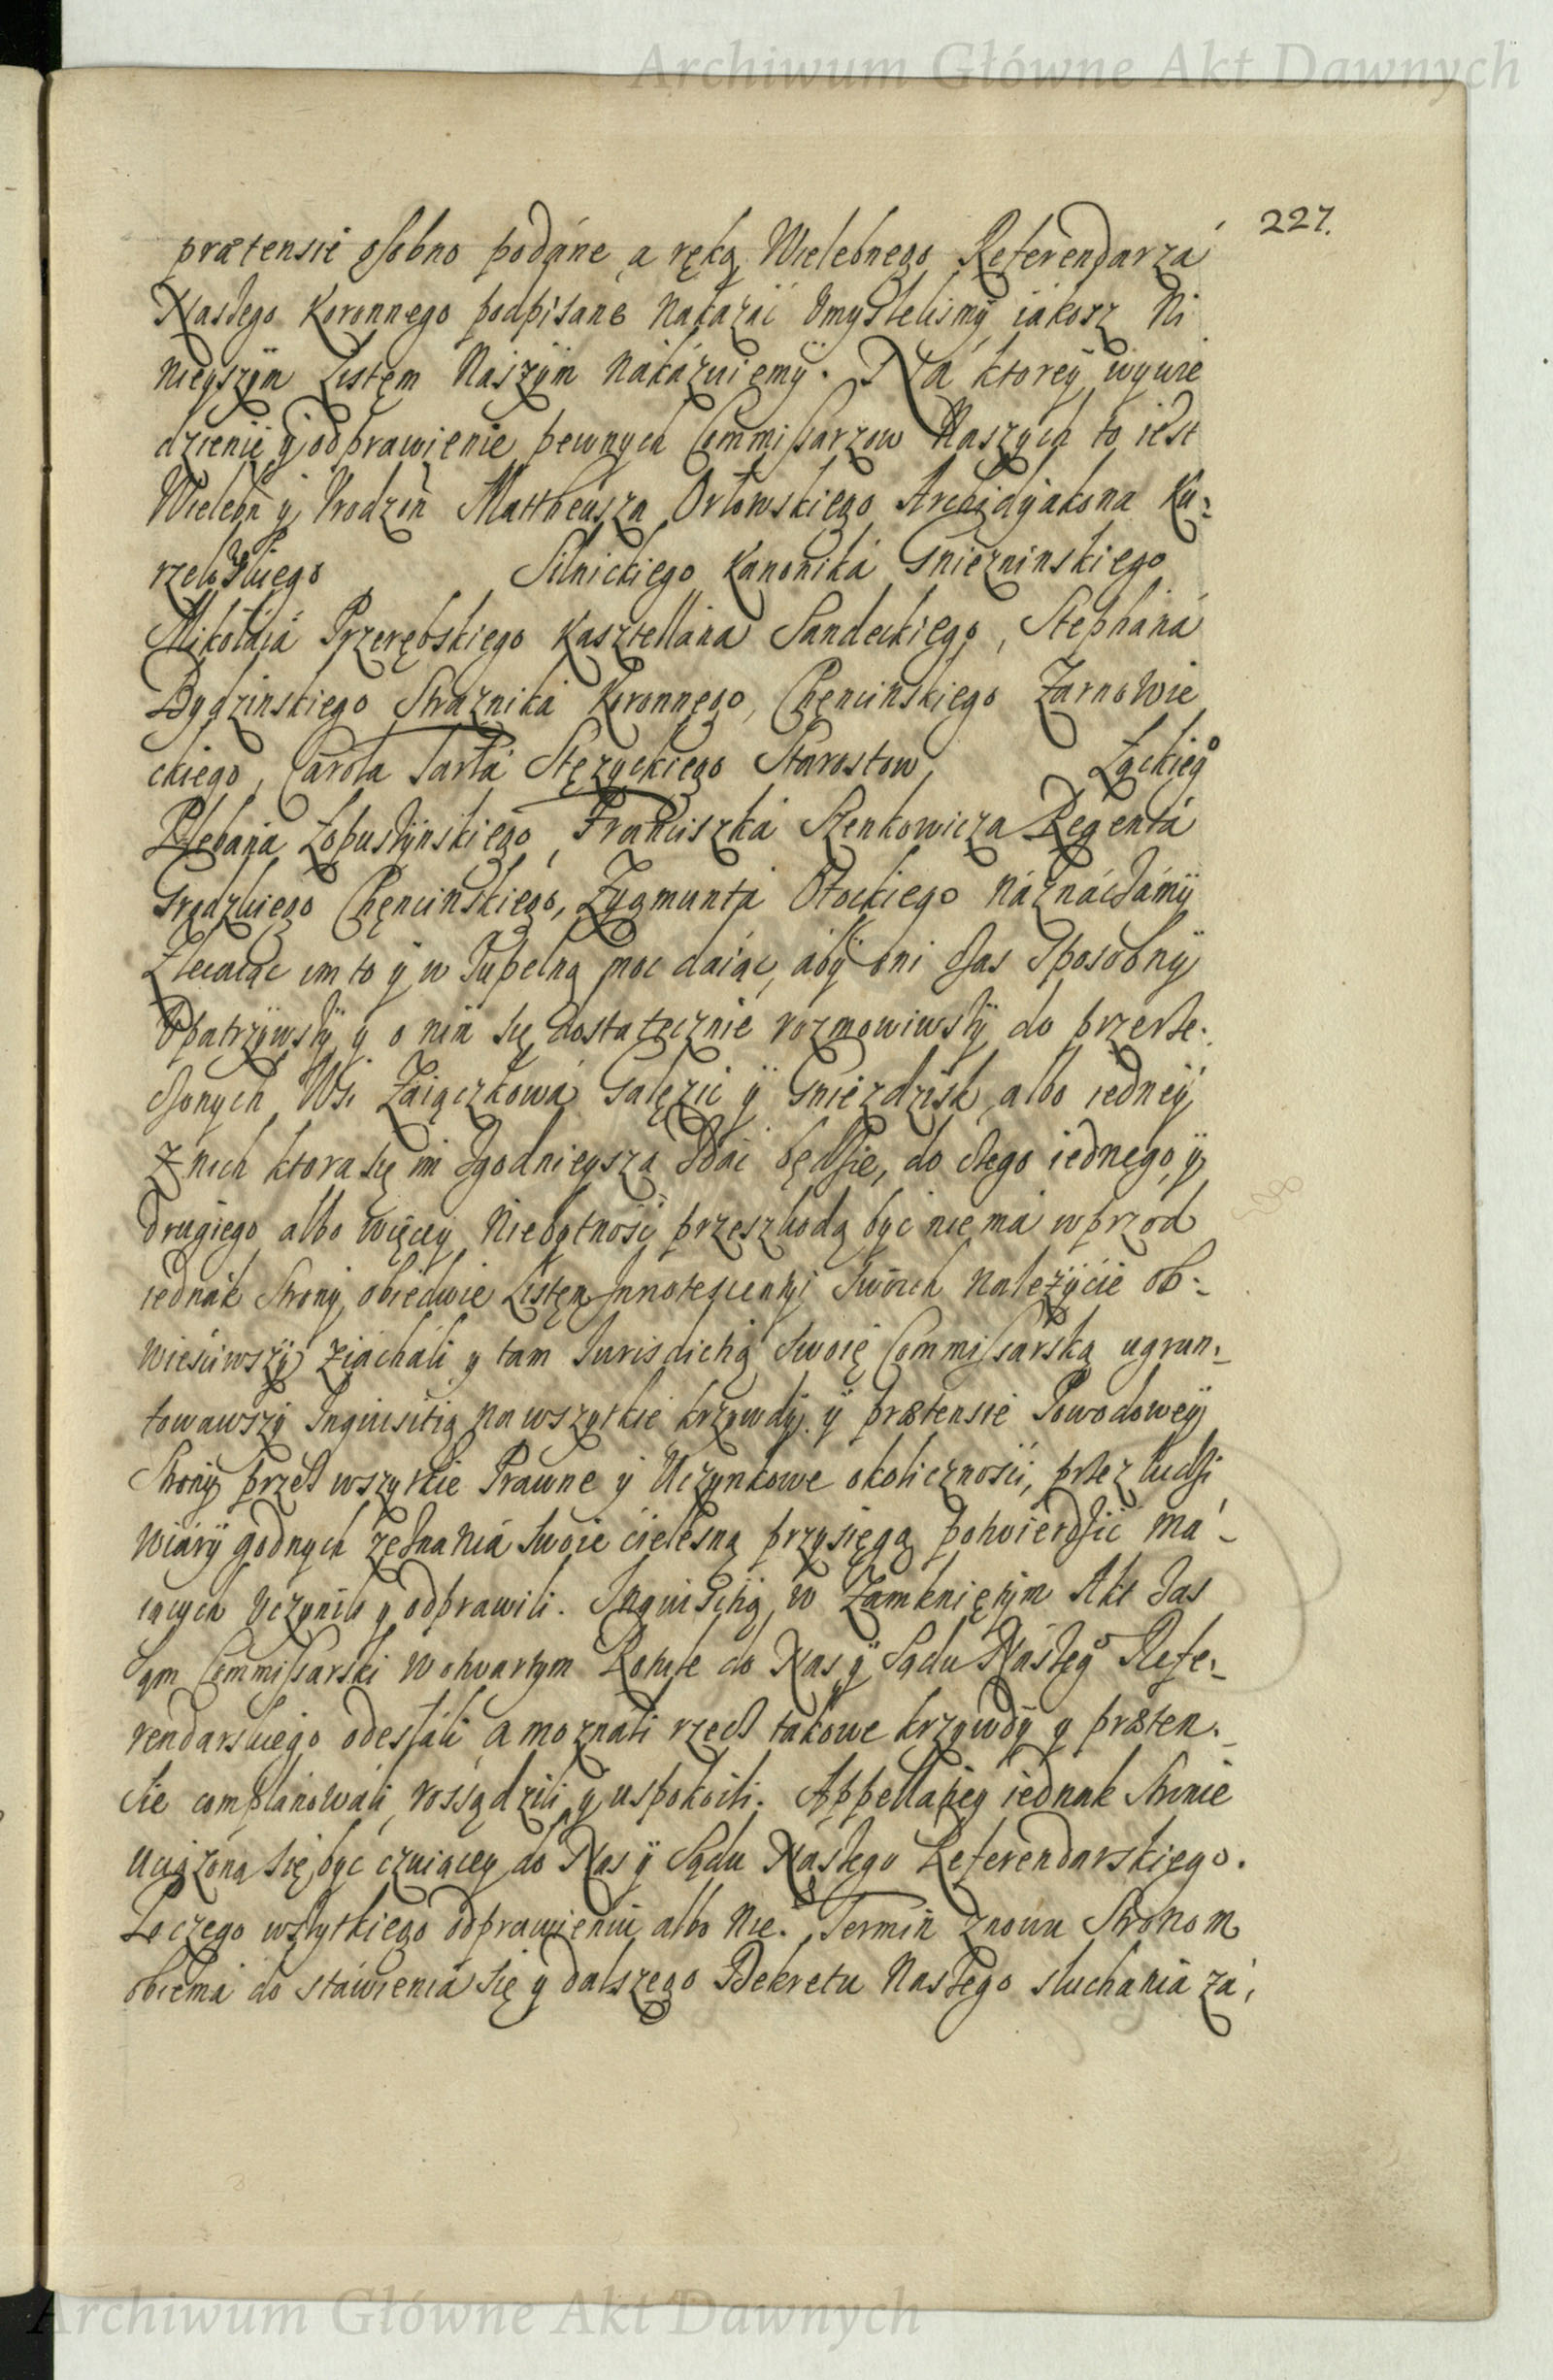 Archiwum Główne Akt Dawnych
227.
prætensie osobno podáne a ręką Wielebnego Referendarzá
Naszego Koronnego podpisane nakázáć umyśleliśmy iákosz Ni
nieyszym Listem Naszym nákázuiemy. Ná ktorey wywie
dzienie y odprawienie pewnych Commissarzow Naszych to iest
Wielebn y Urodzon Mattheusza Orłowskiego Archidyakona Ku:
rzelowskiego Silnickiego Kanoniká Gniezninskiego
Mikołáiá Przerębskiego Kasztellána Sandeckiego, Stephaná
Bydzinskiego Straźniká Koronnego, Chęncinskiego Zarnowie
ckiego, Carola Tarłá Stęzyckiego Starostow, Łęckieg°
Plebaná Łopuszynskiego, Franciszká Szenkowicza Regentá
Grodzkiego Chęncinskiego, Zygmuntá Otockiego náznáczámy
Zlecaiąc im to y w Zupełną moc daiąc, áby oni czas sposobny
Upatrzywszy y o nim się dostátecznie rozmowiwszy do przerze:
czonych Wsi Zaiączkowá Gałęzic y Gniezdzisk albo iedney
z nich ktora się im zgodnieysza zdáć będzie, do czego iednego y
drugiego albo więcey niebytność przeszkodą być nie ma wprzod
iednák Strony obiedwie Listem Innotescentyi Swoich należycie ob:
wieściwszy ziácháli y tam Jurisdictią Swoię Commissarską ugrun:
towawszy Inquisitią na wszytkie krzywdy y prætensie Powodowey
Strony przez wszytkie Prawne y Uczynkowe okoliczności, przez ludzi
wiáry godnych zeznánia Swoie cielesną przysięgą potwierdzić má-
iących uczynili y odprawili. Inquisitią w Zamkniętym Akt zas
sąm Commissarski w otwartym Rotule do Nas y Sądu Nászeg° Refe:
rendarskiego odesłáli a moználi rzecz takowe krzywdy y præten:
sie complánowáli rossądzili y uspokoili. Appellápiey iednak Stronie
Uciążoną się być czuiącey do Nas y Sądu Nászego Referendarskiego.
Po czego wszytkiego odprawieniu albo nie. Termin znowu Stronom
obiemá do stáwieniá się y dalszego Dekretu Naszego słuchania zá,
Archiwum Główne Akt Dawnych